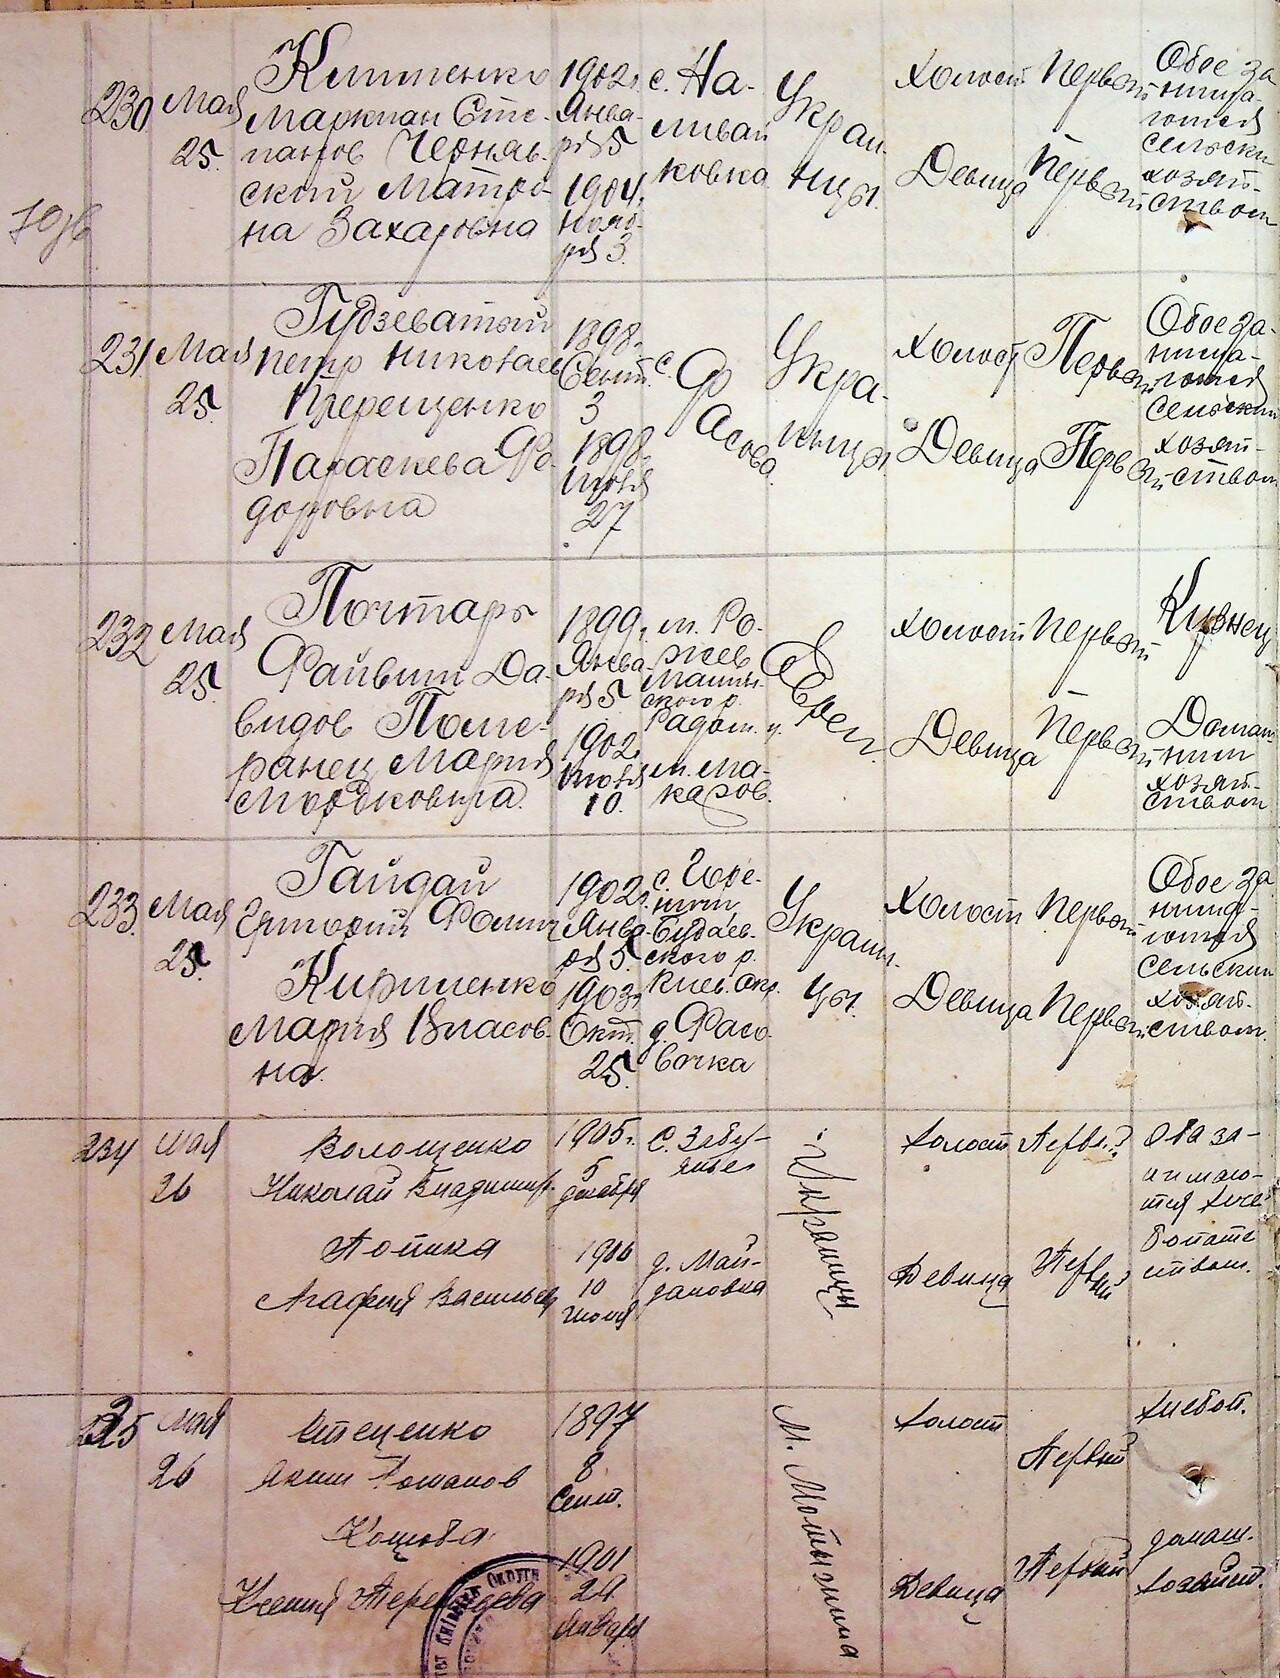 230 Мая 25
Клименко
Маркиан Сте-
панов Черняв-
ский Матро-
на Захаровна
1902 г.
Янва-
ря 5
1904 г.
Нояб-
ря 3
с. На-
ливай
ковка
Украи-
нцы.
Холост
Девица
Первый
Первый
Обое за
нима-
ются
сельски
хозяй-
ством
231 Мая 25
Гудзеватый
Петр Николаев
Терещенко
Параскева Фо-
доровна
1898 г.
Сент.
3
1898 г.
Июля
27
с. Ф
асова
Укра-
инцы
Холост
Девица
Первый
Первый
Обое за-
нима-
ются
сельским
хозяй-
ством
232 Мая 25
Почтарь
Файвиш Да-
видов Поме-
ранец Мария
Мордковна
1899 г.
Янва-
ря 5
1902
Июля
10.
м. Ро-
жев
ского р.
Радом. у.
м. Ма-
каров.
Евреи.
Холост
Девица
Первый
Первый
Кузнец
Домаш-
ним
хозяй-
ством
233 Мая 25
Гайдай
Григорий Фомич
Кириленко
Мария Власов-
на.
1902 г.
Янва-
ря 5
1903 г.
Окт.
25
с. Горе-
ничи
Будаев-
ского р.
Киев. окр.
д. Фасо-
вочка
Украин-
цы.
Холост
Девица
Первый
Первый
Обое за
нима-
ются
сельским
хозяй-
ством
234 мая 26
Волощенко
Николай Владимир.
Агафия Васильев
1905 г.
5
декабря
1906
10
июня
с. Забу-
янье
д. Май-
дановка
Украинцы
холост
Девица
Первый
Первый
Оба за-
нимаю-
тся хле
бопаше
ством.
235 мая 26
Стеценко
Яким Романов
Коцюба
Ксения
1897
8
Сент.
1901
24
января
М. Мотыжина
холост
Девица
Первый
Первый
хлебоп.
домаш.
хозяйст.
ОКРУГИ